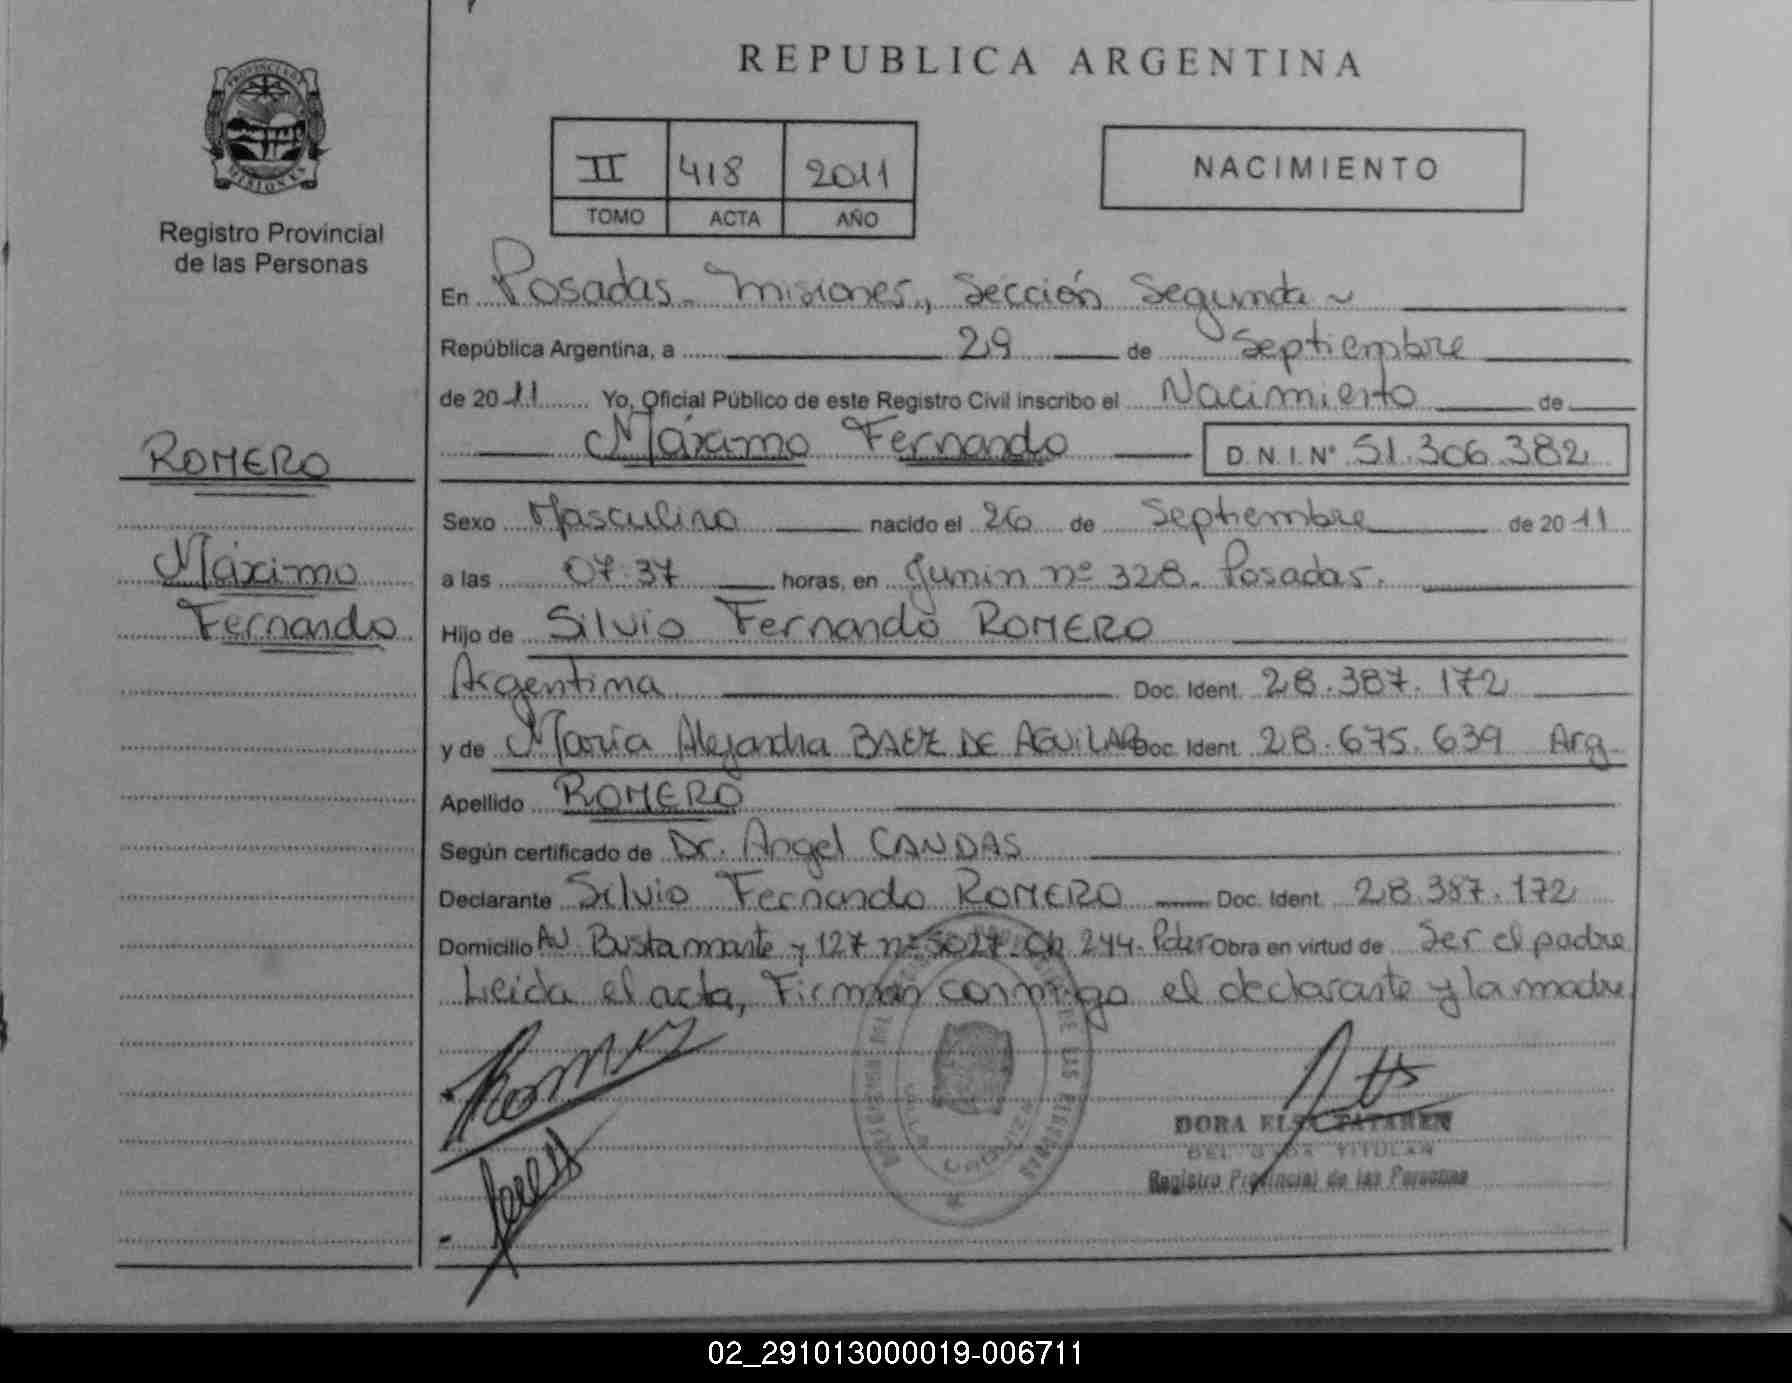 REPUBLICA ARGENTINA
PROVINCIA DE
MISIONES
Registro Provincial
de las Personas
II 418 2011
TOMO ACTA AÑO
NACIMIENTO
En Posadas - Misiones, Sección Segunda ~
República Argentina, a 29 de Septiembre
de 2011 Yo, Oficial Público de este Registro Civil inscribo el Nacimiento de
Máximo Fernando D.N.I.N° 51.306.382
ROMERO
Máximo
Fernando
Sexo Masculino nacido el 26 de Septiembre de 2011
a las 07:37 horas, en Junin nº 328. Posadas.
Hijo de Silvio Fernando ROMERO
Argentina Doc. Ident. 28.387.172
y de María Alejandra BAEZ DE AGUILAR Doc. Ident. 28.675.639 Arg
Apellido ROMERO
Según certificado de Dr. Angel CANDAS
Declarante Silvio Fernando ROMERO Doc. Ident. 28.387.172
Domicilio AV. Bustamante y 127 nº 5027 Ch 244. Obra en virtud de Ser el padre
Leida el acta, Firman conmigo el declarante y la madre
DORA ELSA
TITULAR
Registro Provincial de las Personas
02_291013000019-006711